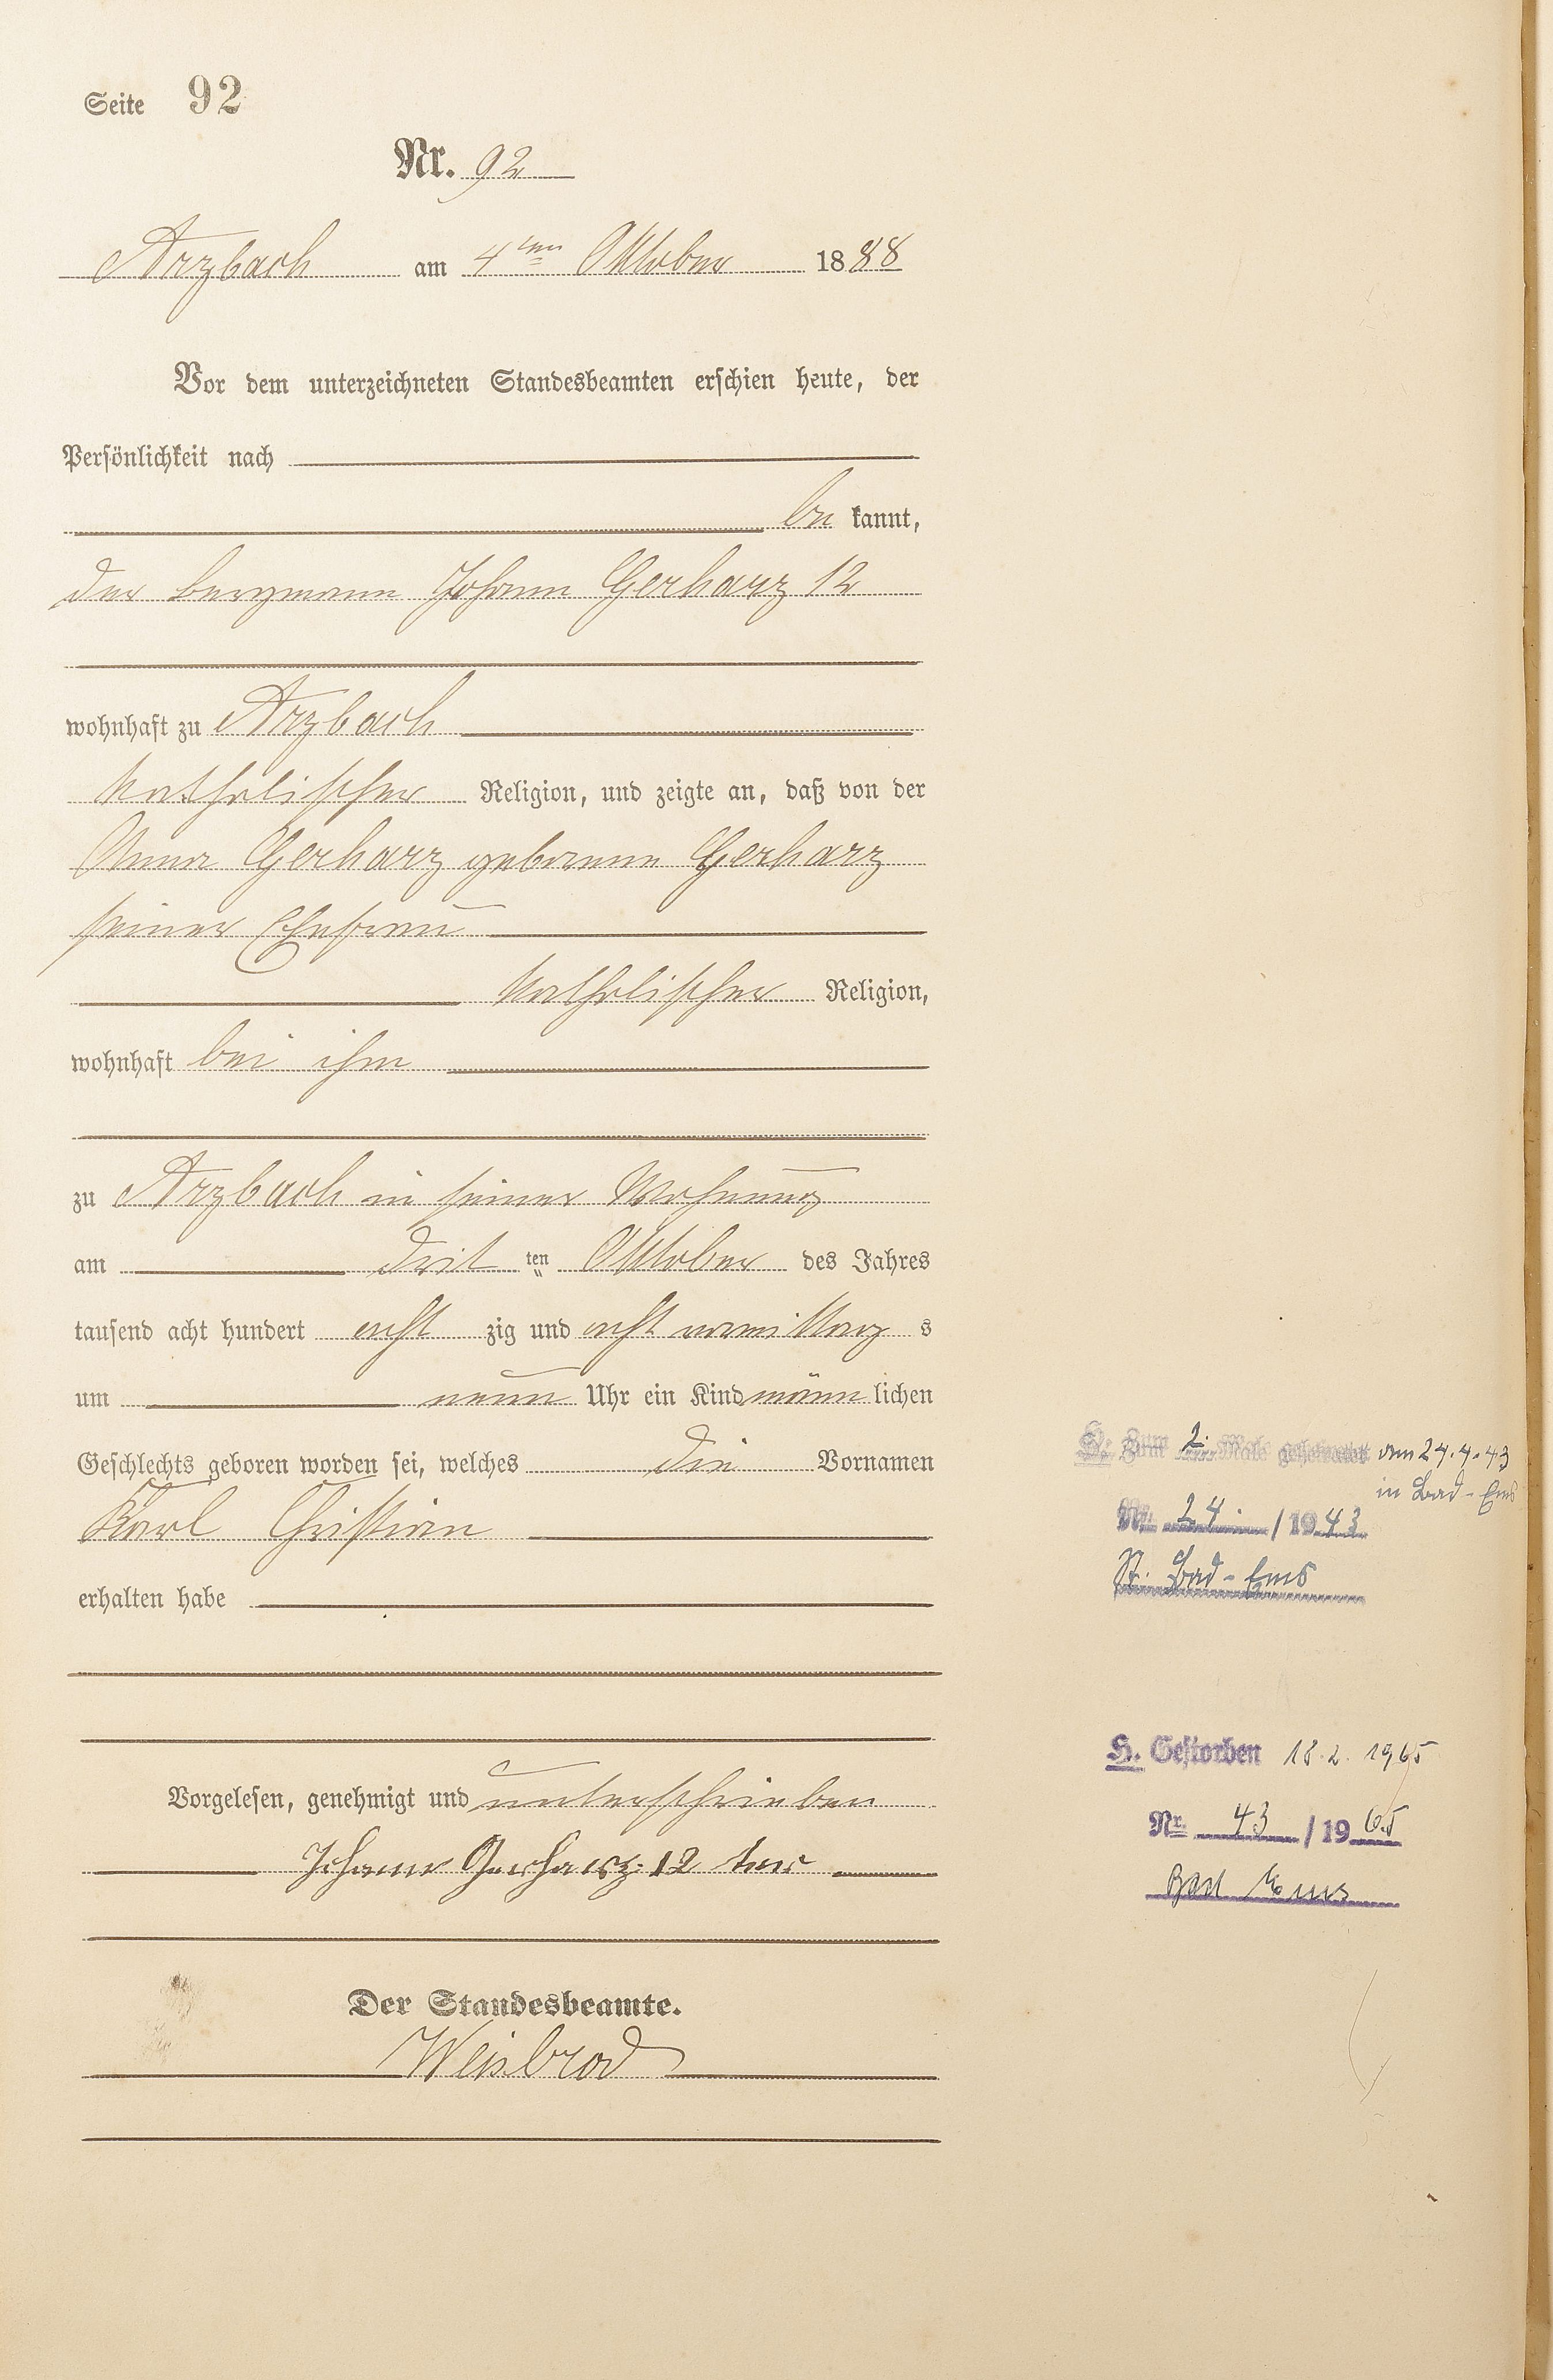 Seite 92
Nr. 92
Arzbach am 4ten Oktober 1888
Vor dem unterzeichneten Standesbeamten erschien heute, der
Persönlichkeit nach
bekannt,
der Bergmann Johann Gerharz 12
wohnhaft zu Arzbach
katholischer Religion, und zeigte an, daß von der
Anna Gerharz geborene Gerharz
seiner Ehefrau
katholischer Religion,
wohnhaft bei ihm
zu Arzbach in seiner Wohnung
am dritten Oktober des Jahres
tausend acht hundert achtzig und acht vormittags
um neun Uhr ein Kind männlichen
Geschlechts geboren worden sei, welches die Vornamen
Karl Christian
erhalten habe
Vorgelesen, genehmigt und unterschrieben
Johann Gerharz 12 ter
Der Standesbeamte.
Weisbrod
H. Zum 2. Male geheiratet am 24.4.43
in Bad-Ems
Nr. 24 / 1943
St. Bad-Ems
H. Gestorben 18.2.1965
Nr. 43 / 1965
Bad Ems